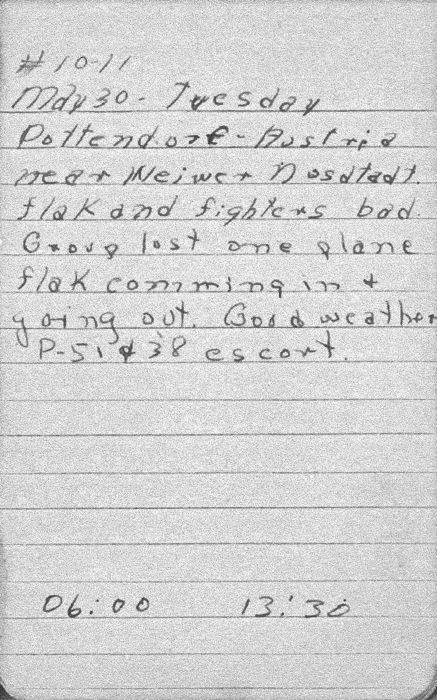 #10-11
May 30 - Tuesday
Pottendorf - Austria
near Weiner Nosdtadt.
flak and fighters bad.
Group lost one plane
flak comming in +
going out. Good weather
P-51 & 38 escort.
06:00 13:30